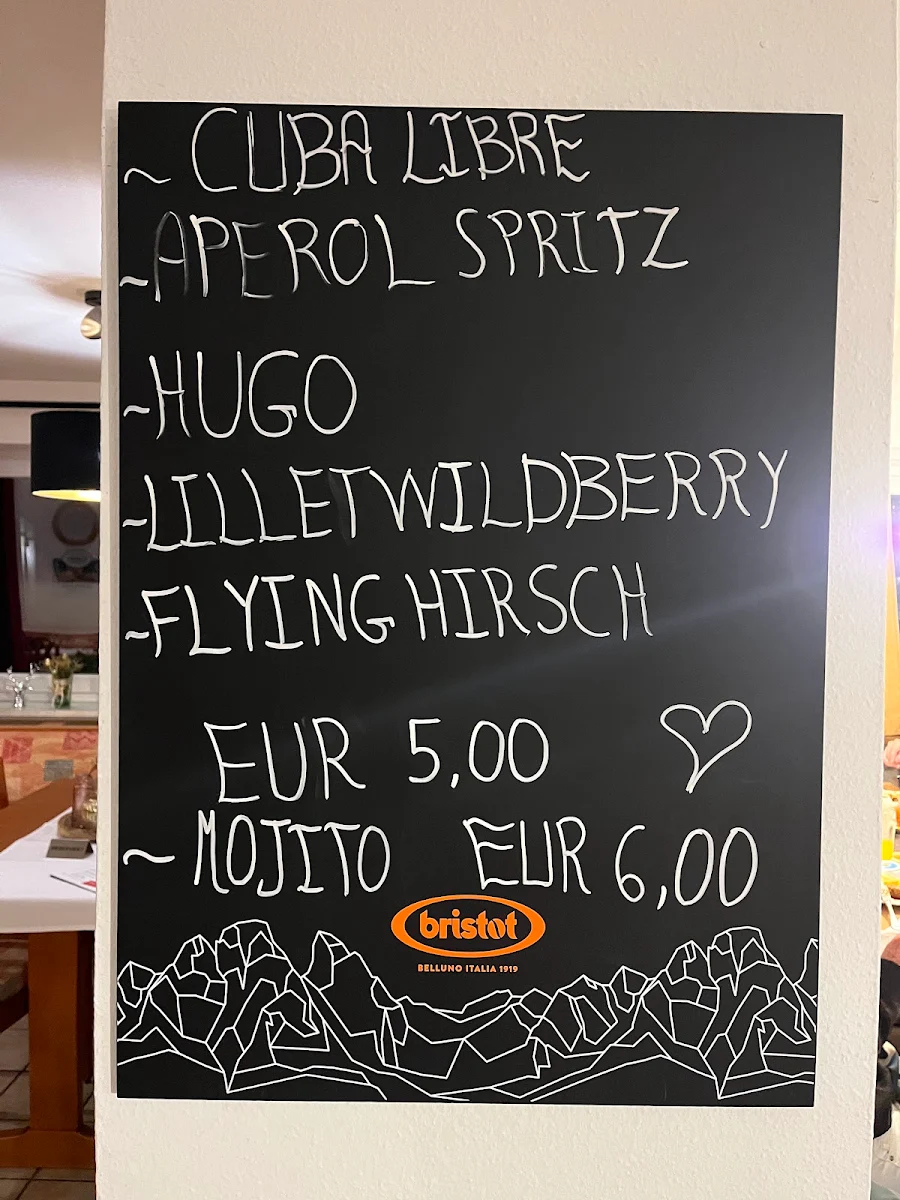 ~ CUBA LIBRE
~APEROL SPRITZ
~HUGO
~LILLET WILDBERRY
~FLYING HIRSCH
EUR 5,00 ♡
~ MOJITO EUR 6,00
bristot
BELLUNO ITALIA 1919